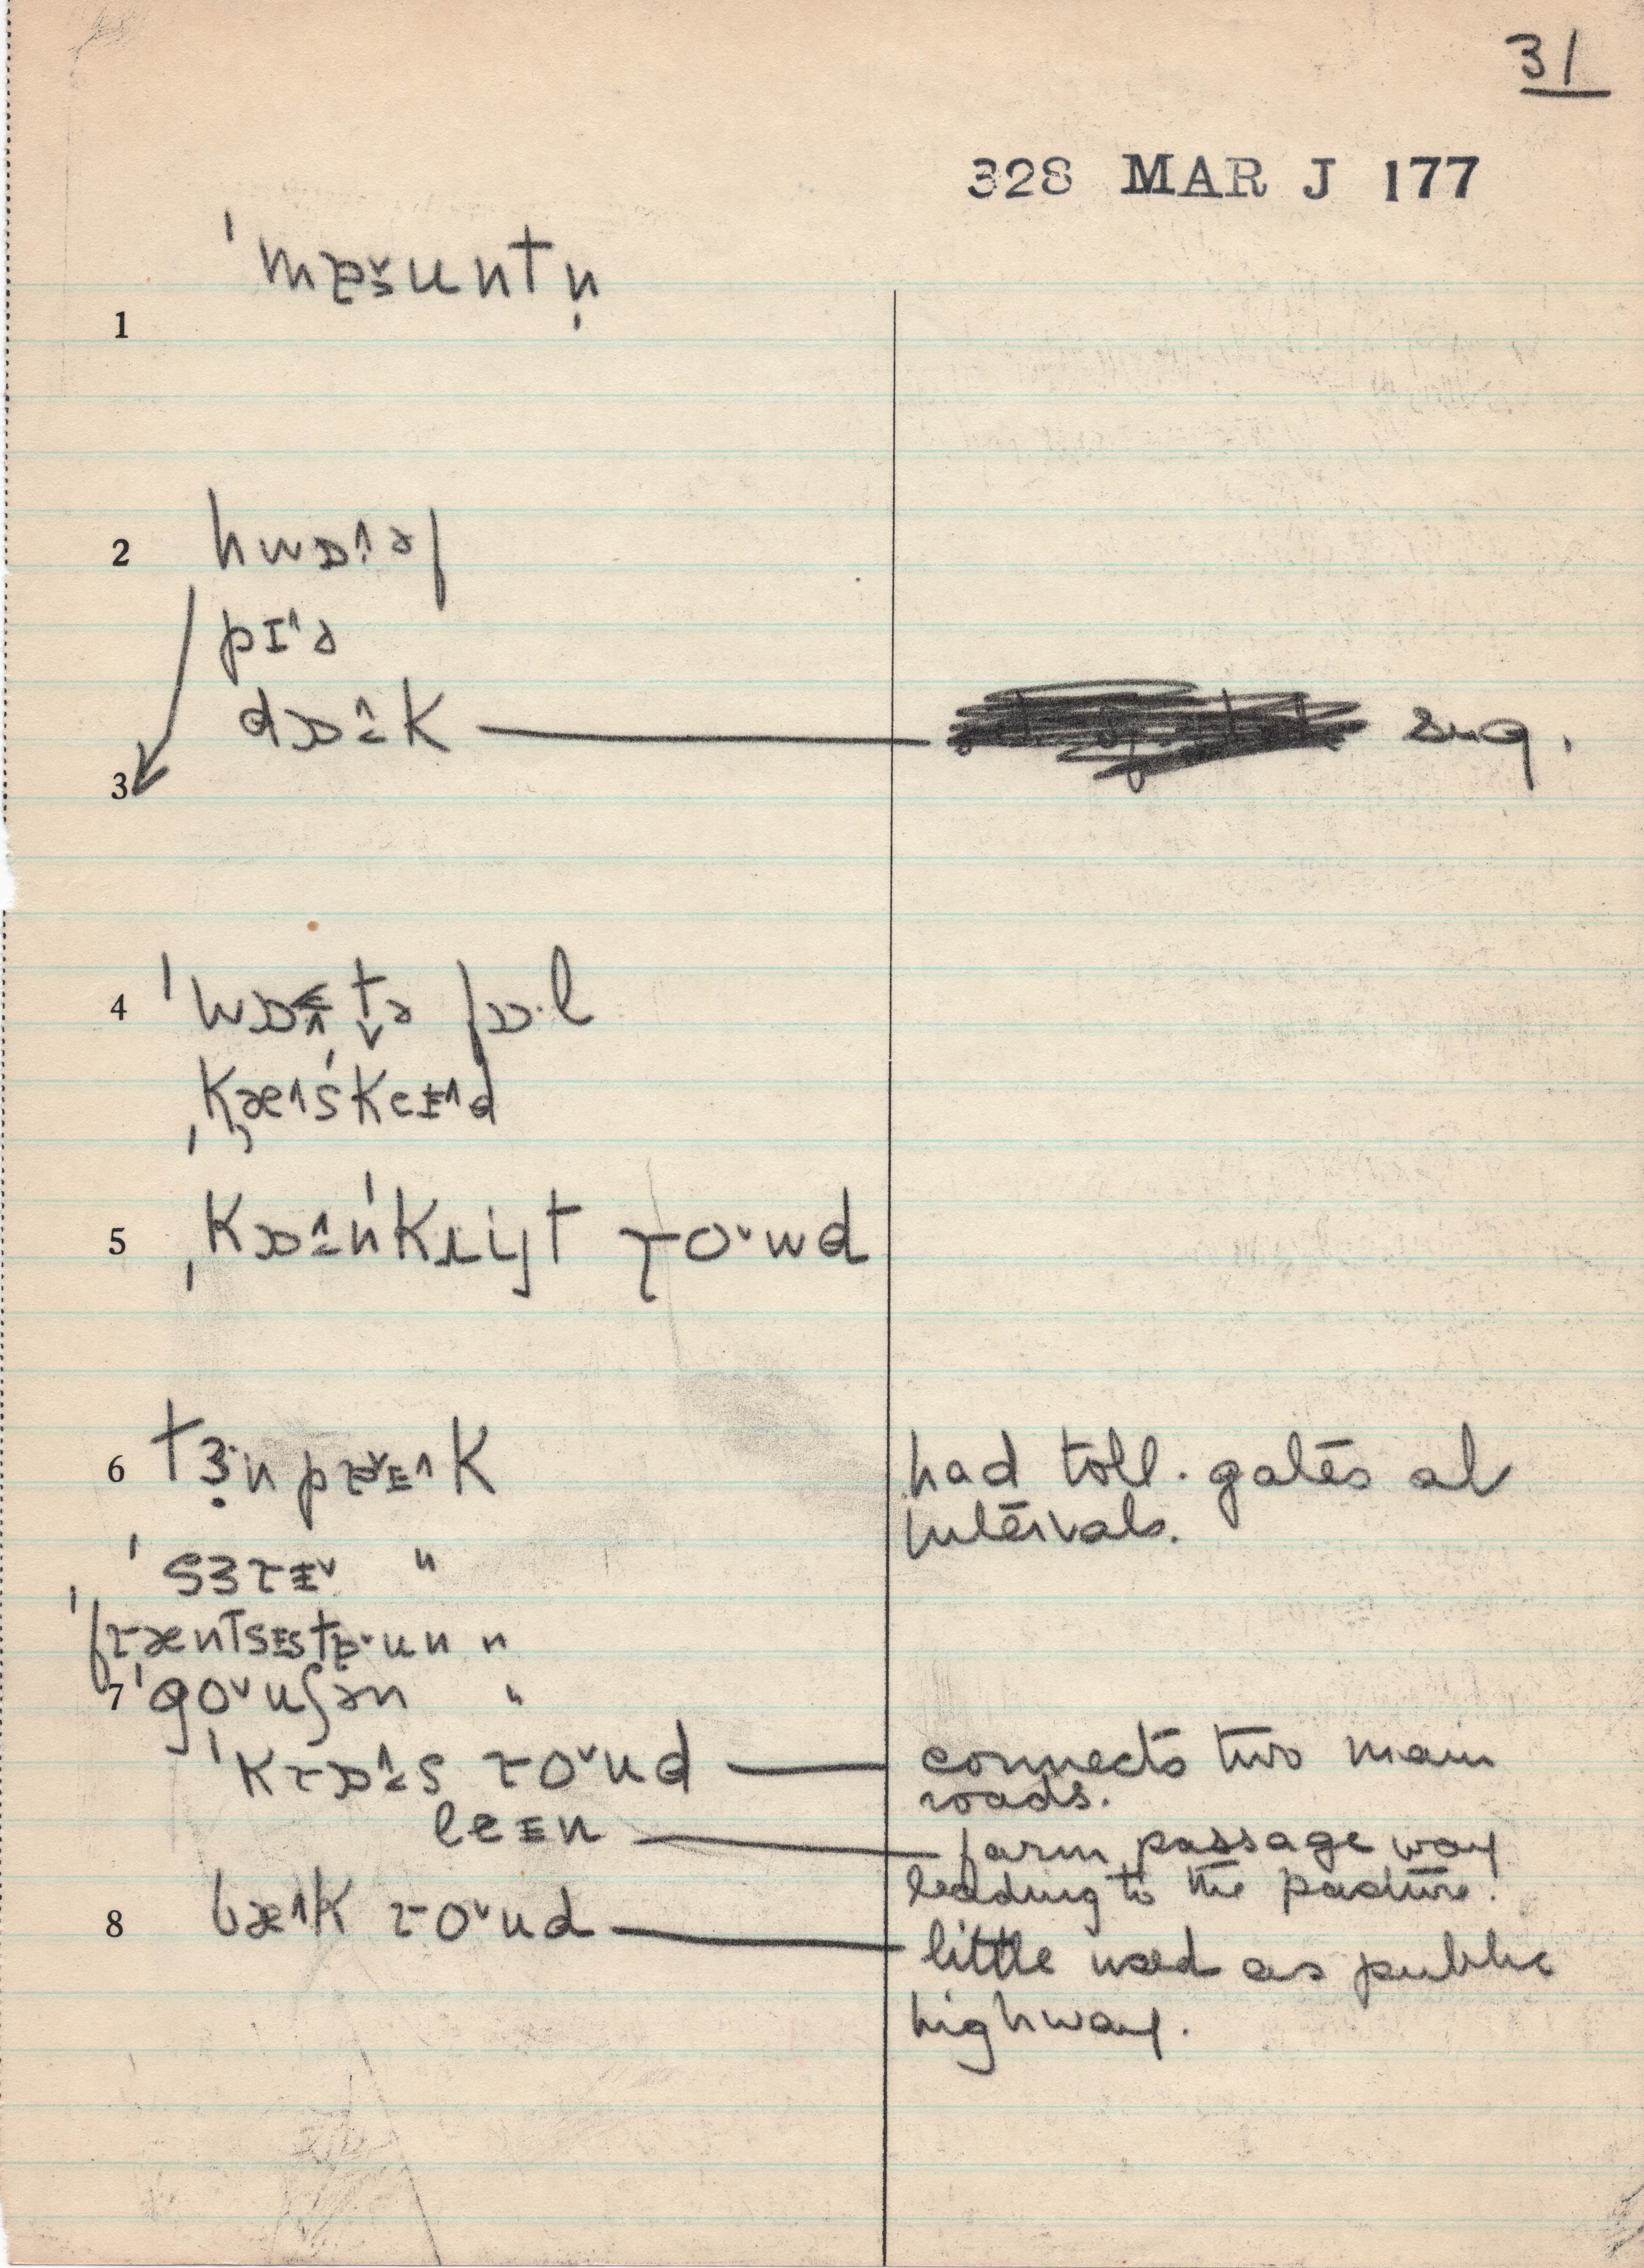 31
328 MAR J 177
1 ˈmɐ̌untn̩
2 hwɒ˄·əf
pɪ˄ə
dɒ˄k sug.
3
4 ˈwɒtə fɒ·l
ˌkæ˄sˈkeɪ˄d
5 ˌkɒ˄nˈkrijt ɹo˅wd
6 tɜ·npɐɪ˄k had toll-gates at
intervals.
ˈsɜɹɪ˅ "
ˈfɹæntsɪstɐ˅un "
7 ˈgo˅uʃən "
ˈkɹɒ˄s ɹo˅ud connects two main
roads.
leɪn farm passage way
leading to the pasture.
8 bæ˄k ɹo˅ud little used as public
highway.